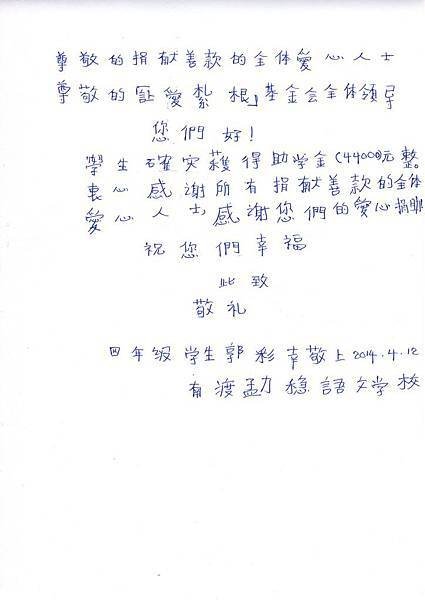 尊敬的捐献善款的全体爱心人士
尊敬的「让愛紮根」基金会全体領导
您們好!
學生確实獲得助学金(44000)元整。
衷心感谢所有捐献善款的全体
愛心人士,感谢您們的愛心捐助
祝您們幸福
此致
敬礼
四年级学生郭彩幸敬上2014.4.12
有渡孟力穩語文学校